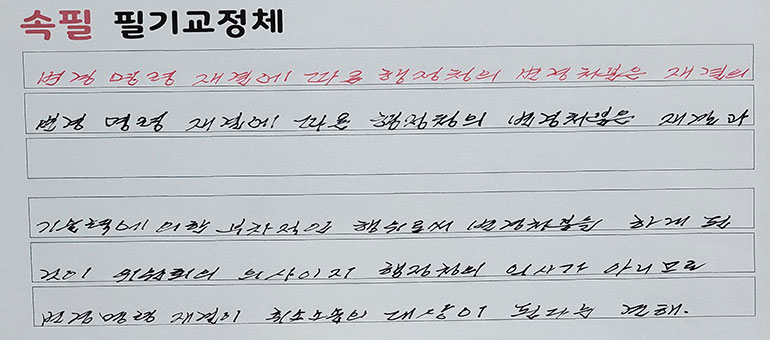 속필 필기교정체
변경 명령 재결에 따른 행정청의 변경처분은 재결의
변경 명령 재결에 따른 행정청의 변경처분은 재결과
기속력에 의한 부차적인 행위로써 변경처분을 하게 된
것이 위원회의 의사이지 행정청의 의사가 아니므로
변경명령 재결이 취소소송의 대상이 된다는 견해.